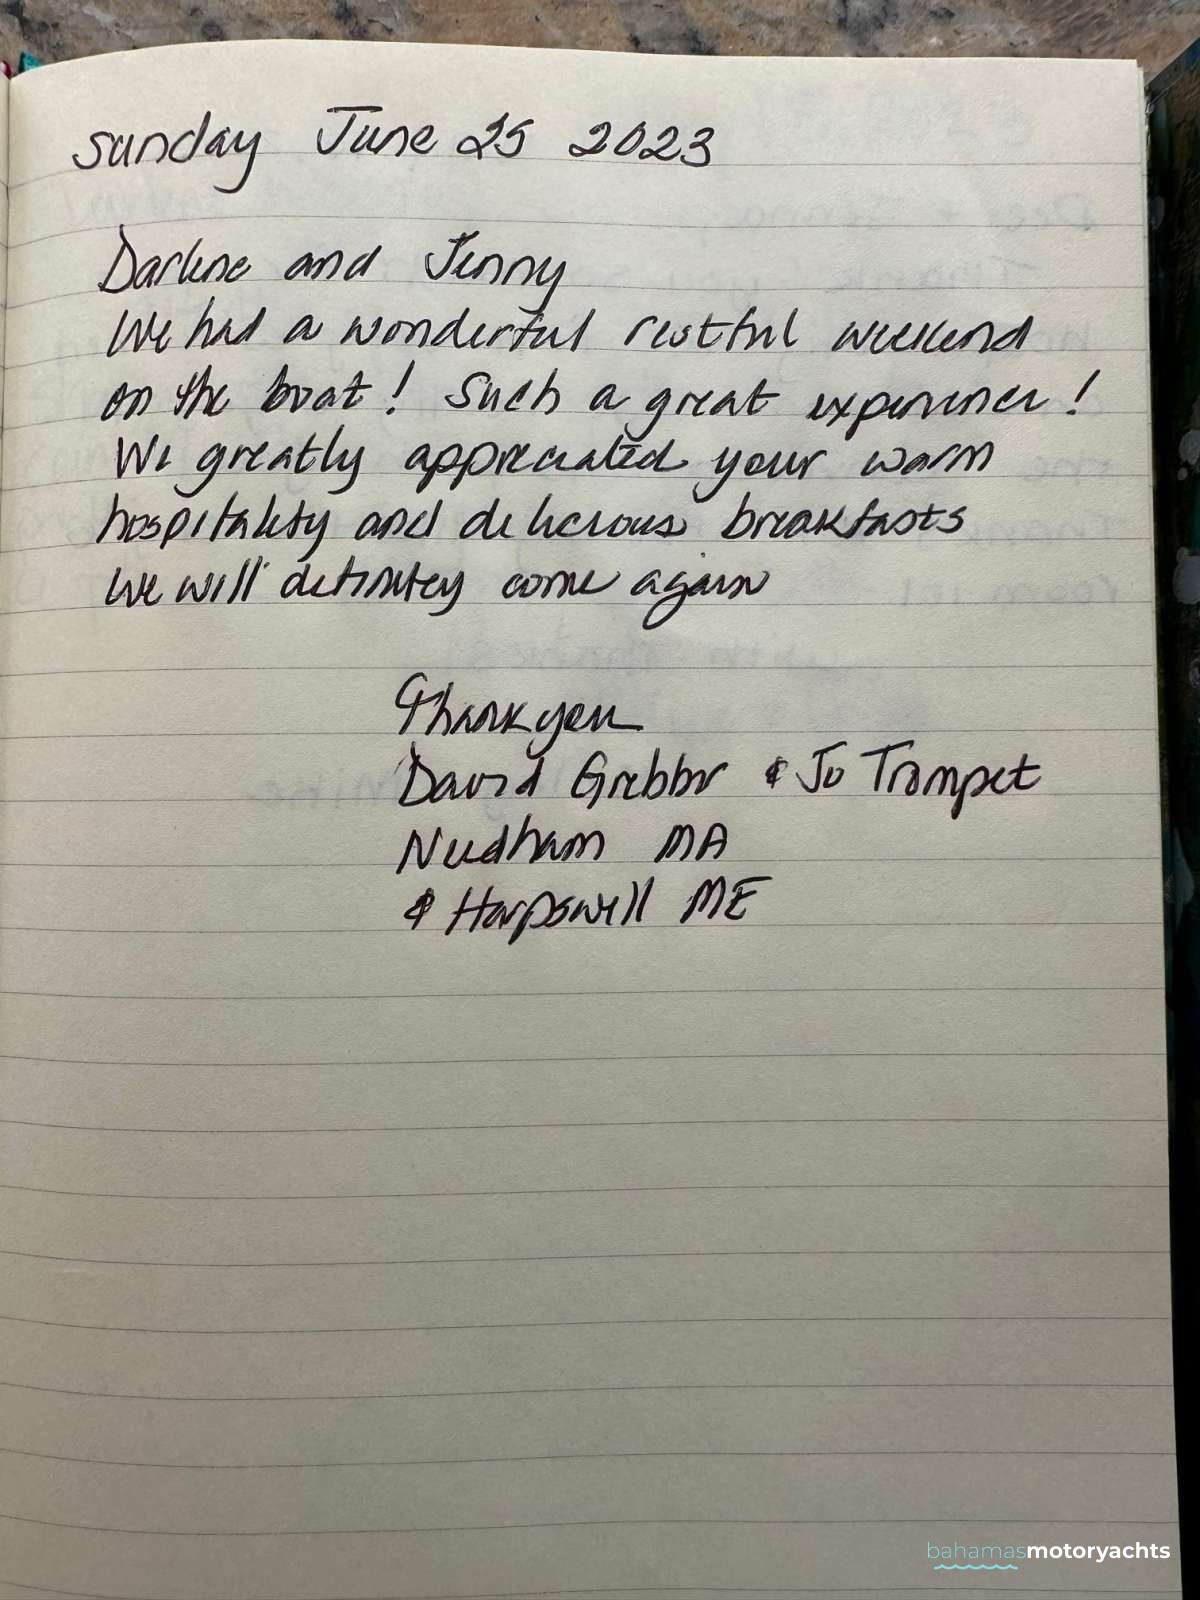 Sunday June 25 2023
Darlene and Jenny
We had a wonderful restful weekend
on the boat! Such a great experience!
We greatly appreciated your warm
hospitality and delicious breakfasts
We will definitey come again
Thank you
David Grebber & Jo Trompet
Needham MA
& Harpswell ME
bahamasmotoryachts